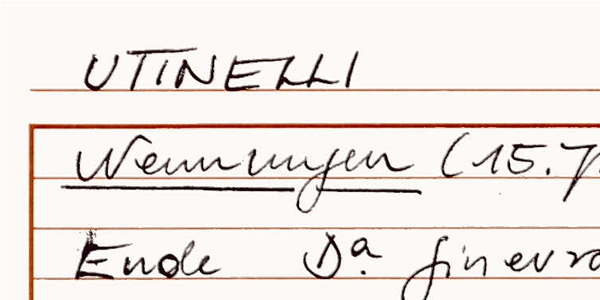 UTINELLI
Nennungen (15.7
Ende Dª. Ginevra